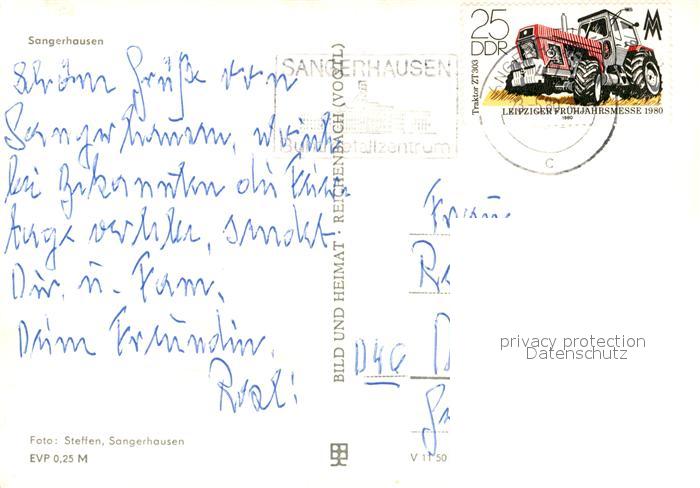 Sangerhausen
Schöne Grüße von
Sangerhausen, wo ich
bei Bekannten die Feier-
tage verlebe, sendet
Dir u. Fam.
Deine Freundin
Rosl:
Foto: Steffen, Sangerhausen
EVP 0,25 M
BILD UND HEIMAT · REICHENBACH (VOGTL)
V 11 50
SANGERHAUSEN
25
DDR
Traktor ZT 303
LEIPZIGER FRÜHJAHRSMESSE 1980
1980
c
Frau
D
privacy protection
Datenschutz